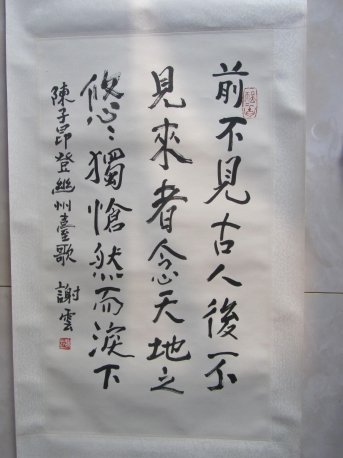 前不見古人後不
見來者念天地之
悠々獨愴然而淚下
陳子昂登幽州臺歌 謝雲